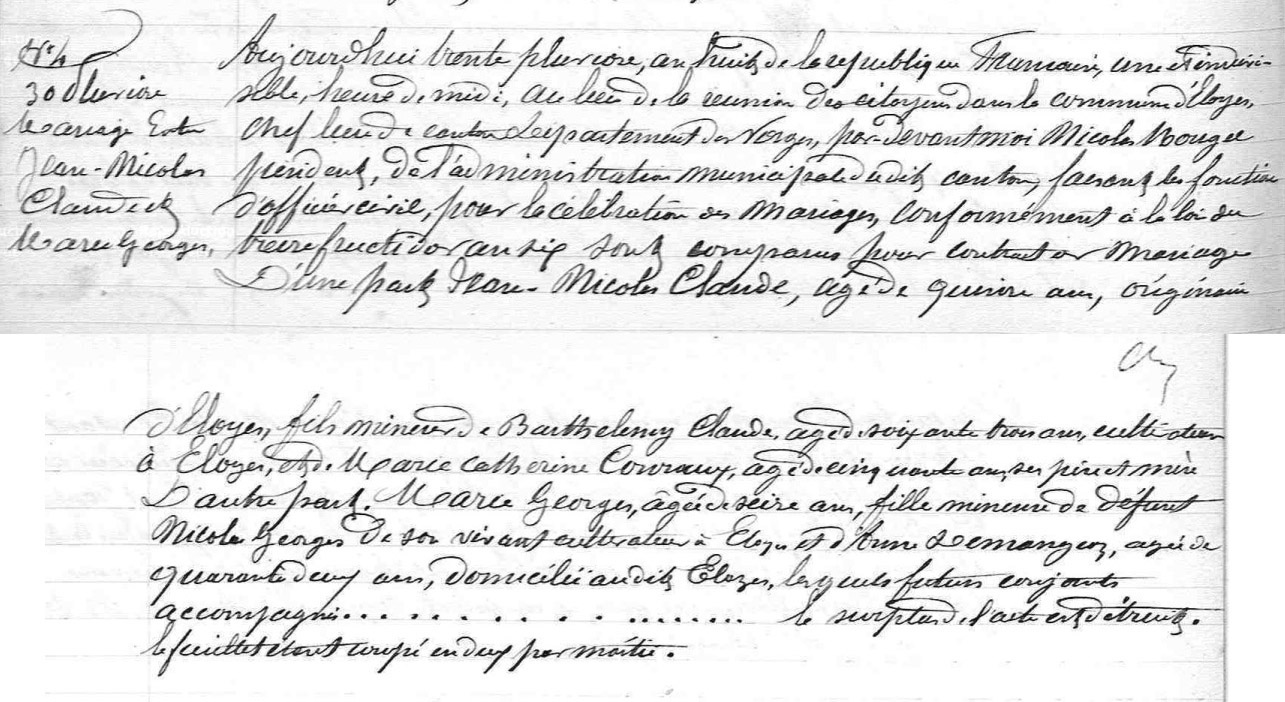 N° 4
30 Pluviose
Mariage Entre
Jean-Nicolas
Claude et
Marie Georges,
Aujourd'hui trente pluviose, an huit de la republique Francaise, une et indivi-
sible, heure de midi, au lieu de la reunion des citoyens dans la commune d'Eloyes,
chef lieu de canton departement des Vosges, par-devant moi Nicolas Rougel
président, de l'administration municipale dudit canton, faisant les fonction
d'officier civil, pour la célébration des Mariages, conformément à la loi du
treize fructidor an six sont comparus pour contracter Mariage
D'une part, Jean-Nicolas Claude, agé de quinze ans, originaire
d'Eloyes, fils mineur de Barthelemy Claude, agé de soixante trois ans, cultivateur
à Eloyes, et de Marie Catherine Couraux, agée de cinquante ans, ses pere et mère
D'autre part. Marie Georges, âgée de seize ans, fille mineure de défunt
Nicolas Georges de son vivant cultivateur à Eloyes et d'Anne Demangeon, agée de
quarante deux ans, domiciliée audit Eloyes, lesquels futurs conjoints
accompagnés.................... le surplus de l'acte est détruit.
le feuillet étant coupé en deux par moitié.